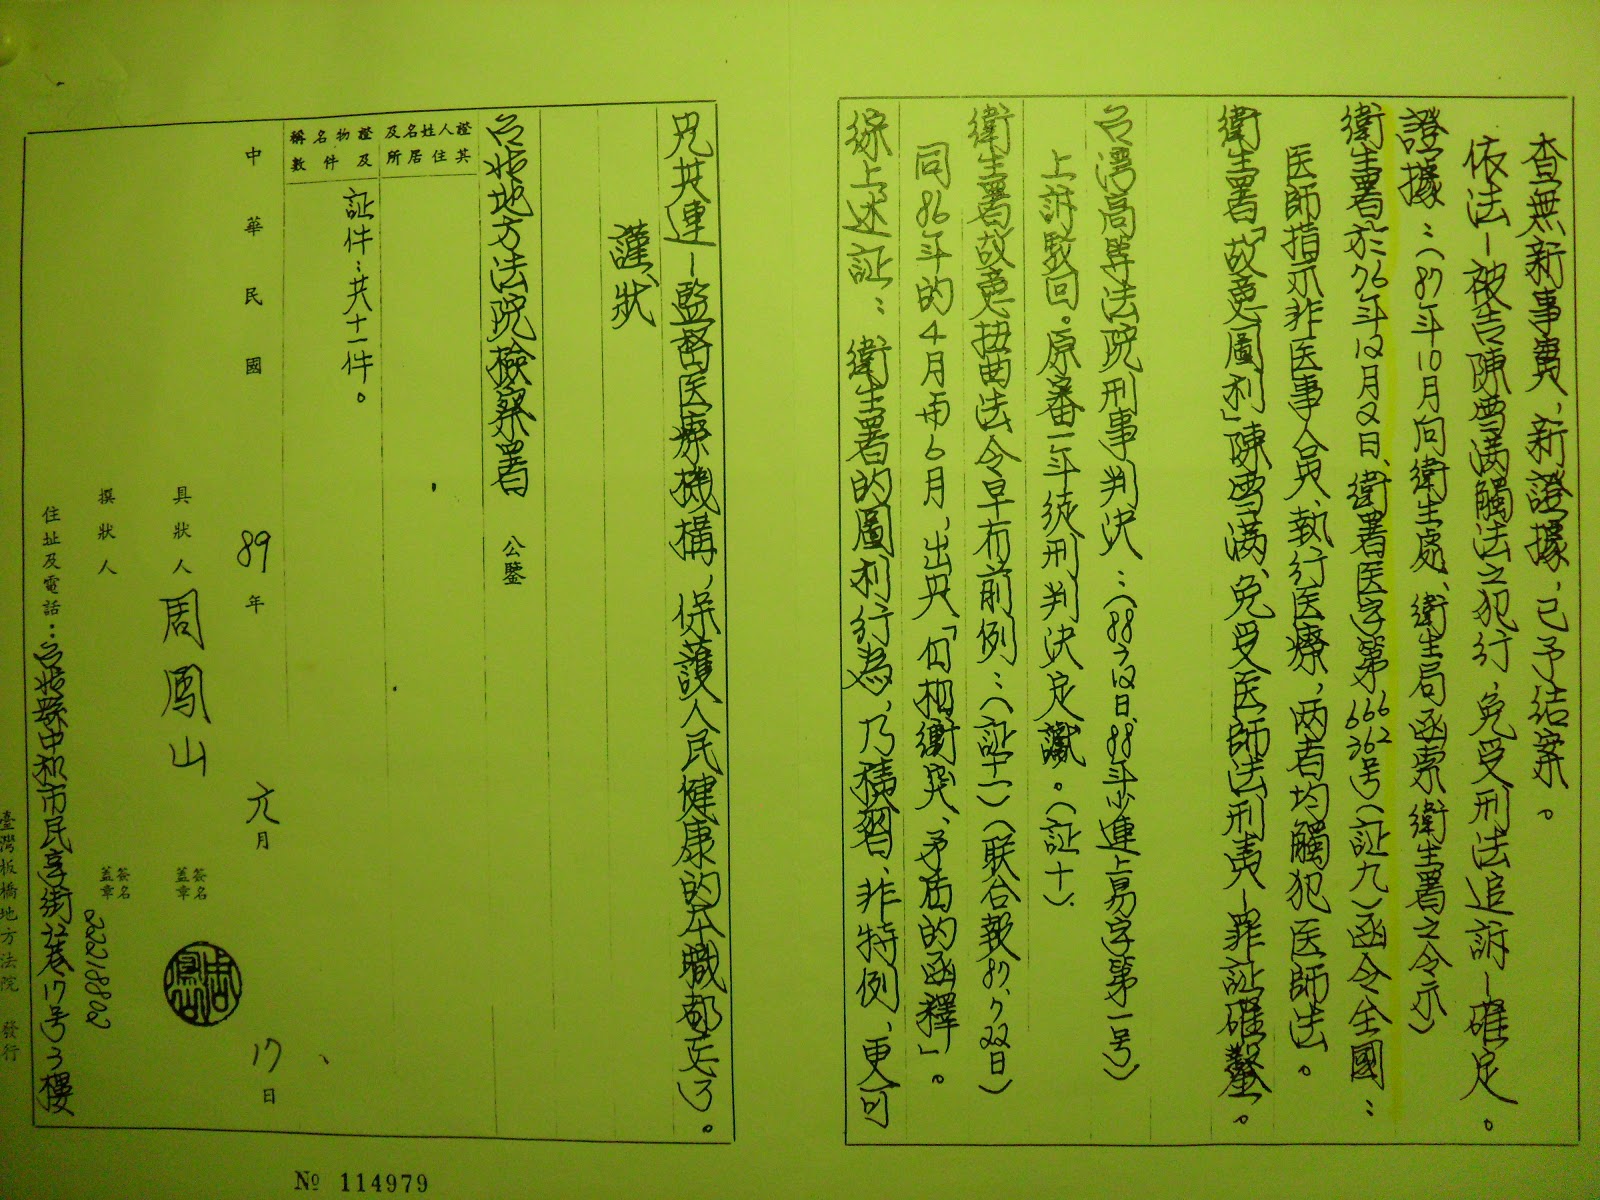 查無新事實、新證據，已予結案。
依法－被告陳雪满觸法之犯行，免受刑法追訴－確定。
證據：（87年10月向衛生處、衛生局函索衛生署之令示）
衛生署於76年12月又日、衛署医字第666362号（証九）函令全國：
医師指示非医事人員、執行医療，两者均觸犯医師法。
衛生署「故意圖利」陳雪满、免受医師法刑責－罪証確鑿。
台湾高等法院刑事判決：（88、7、12日、88年少連上易字第一号）
上訴駁回。原審一年徒刑判決定讞。（証十）
衛生署故意扭曲法令早有前例：（証十一）（联合報87、7、22日）
同86年的4月兩6月，出具「自相衝突、矛盾的函釋」。
綜上述証：衛生署的圖利行為，乃積習、非特例、更可
見其連－監督医療機構，保護人民健康的本職都忘了。
謹狀
台北地方法院檢察署 公鑒
證人姓名及其住居所
證物名稱及件數
証件：共十一件。
中華民國 89 年 元 月 17 日
具狀人 周鳳山 簽名蓋章
撰狀人 簽名蓋章
住址及電話：台北縣中和市民享街22巷17号3樓
22218802
臺灣板橋地方法院 發行
№ 114979